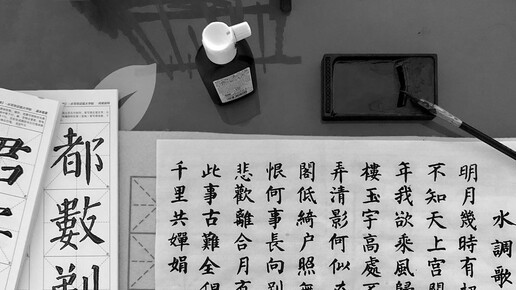 水調歌
明月幾時有
不知天上宮
年我欲乘風歸
樓玉宇高處不
弄清影何似
閣低綺户照無
恨何事長向別
悲歡離合月有
此事古難全但
千里共嬋娟
都數